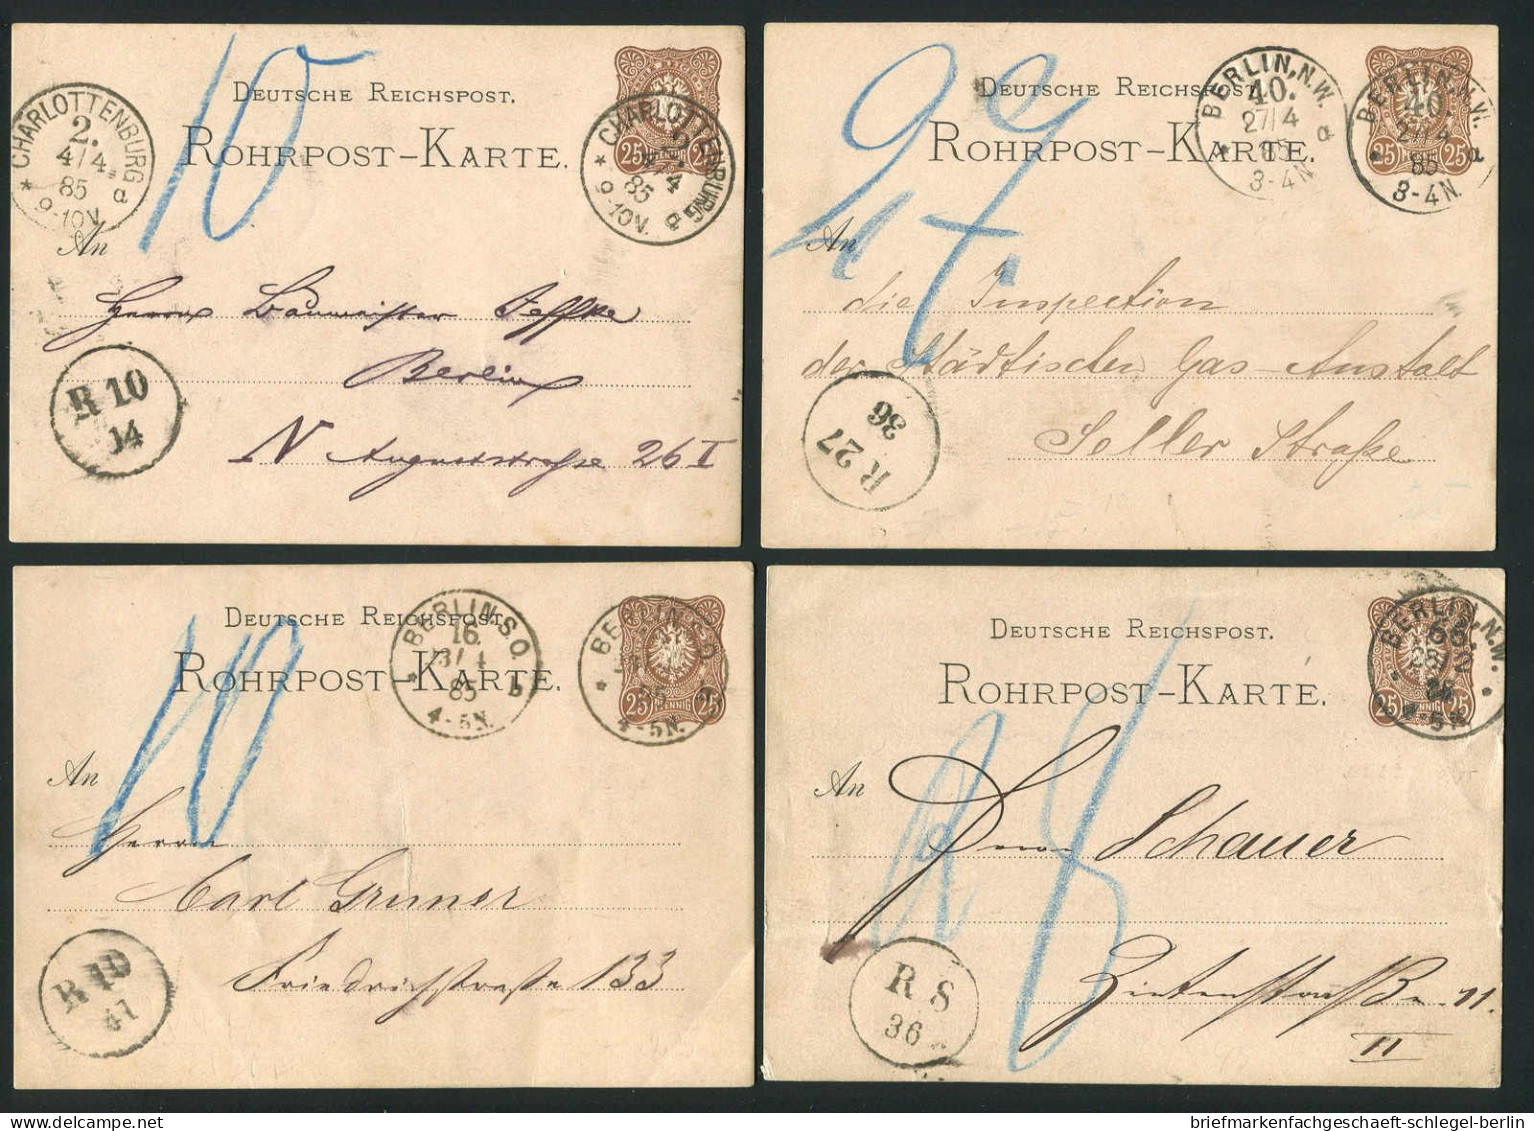 CHARLOTTENBURG
2.
4/4.
85
9-10V.
DEUTSCHE REICHSPOST.
ROHRPOST-KARTE.
10
25 25
CHARLOTTENBURG
85
9-10V.
An
Herrn Baumeister
Berlin
N Auguststraße 26 I
R 10
14
DEUTSCHE REICHSPOST.
ROHRPOST-KARTE.
BERLIN, N.W.
40.
27/4
85
3-4N.
BERLIN, N.W.
40.
27/4
85
3-4N.
25 25
An
die Inspection
der Städtischen Gas-Anstalt
Seller Straße
R 27
36
DEUTSCHE REICHSPOST.
ROHRPOST-KARTE.
BERLIN, S.O.
16.
85
4-5N.
BERLIN, S.O.
4-5N.
25 PFENNIG 25
10
An
Herrn
Carl Gruner
Friedrichstraße 133
R 10
41
DEUTSCHE REICHSPOST.
ROHRPOST-KARTE.
BERLIN, N.W.
4-5N.
25 25
An
Schauer
Zietenstraße 11.
II
R 8
36
briefmarkenfachgeschaeft-schlegel-berlin